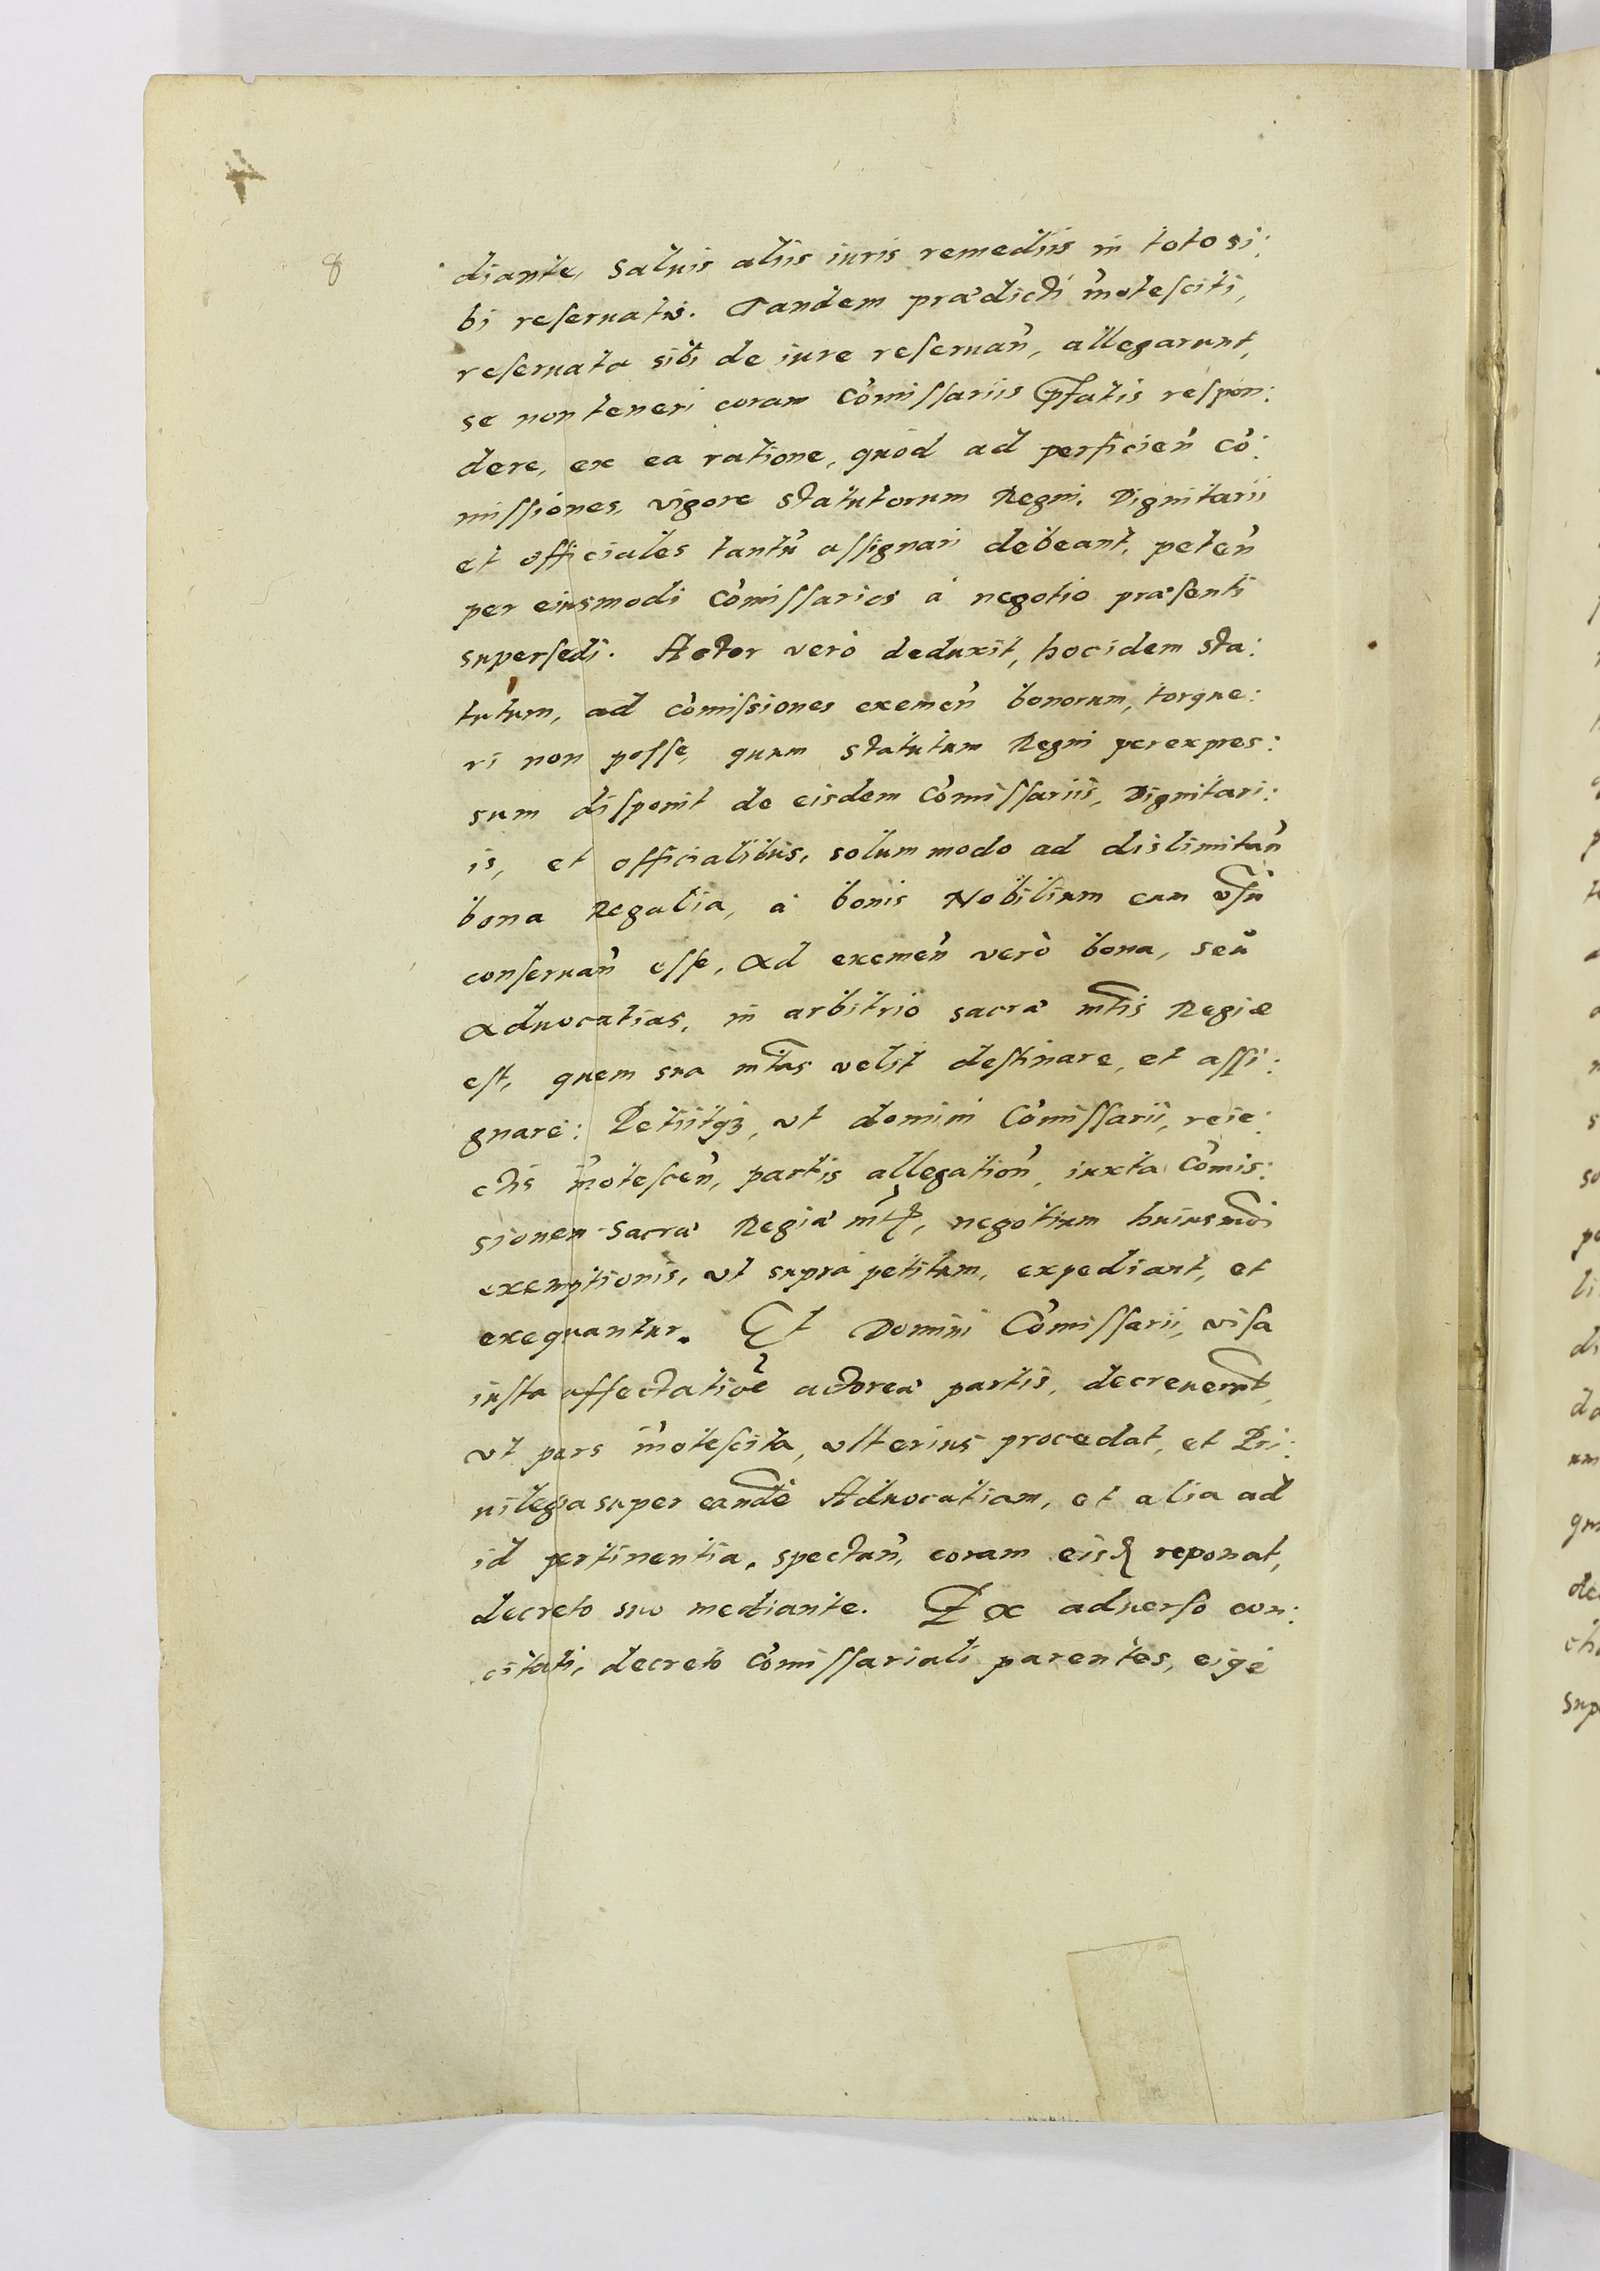 8
diante, Saluis aliis iuris remediis in toto si:
bi reseruatis. Tandem prædicti in̄otesciti,
reseruata sibi de iure reseruan̄, allegarunt,
se non teneri coram Com̄issariis p̄fatis respon:
dere, ex ea ratione, quòd ad perficien̄ Com̄:
missiones, vigore Statutorum Regni, Dignitarii
et officiales tantū assignari debeant, peten̄
per eiusmodi Com̄issarios à negotio præsenti
supersedi. Actor verò deduxit, hoc idem sta:
tutum, ad com̄issiones exemen̄ bonorum, torque:
ri non posse, quum statutum Regni per expres:
sum disponit de eisdem Com̄issariis, Dignitari:
is, et officialibus, solum modo ad dislimitan̄
bona Regalia, à bonis Nobilium eum vsū
conseruan̄ esse, Ad exemen̄ verò bona, seu
Aduocatias, in arbitrio sacræ mt̄is Regiæ
est, quem sua mt̄as velit destinare, et assi:
gnare: Petiitq3, vt domini Com̄issarii, reie:
ctis in̄otescen̄, partis allegation̄, iuxta Com̄is:
sionem Sacræ Regiæ mt̄is, negotium huiusmōi
exemptionis, vt supra petitum, expediant, et
exequantur. Et Domini Com̄issarii, visa
iusta affectatiōe actoreæ partis, decreuerūt,
vt pars in̄otescita, vlterius procedat, et Pri:
uilegia super eandē Aduocatiam, et alia ad
id pertinentia, spectan̄, coram eisd̄ reponat,
decreto suo mediante. Ex aduerso con:
citati, decreto Com̄issariali parentes, eiqe